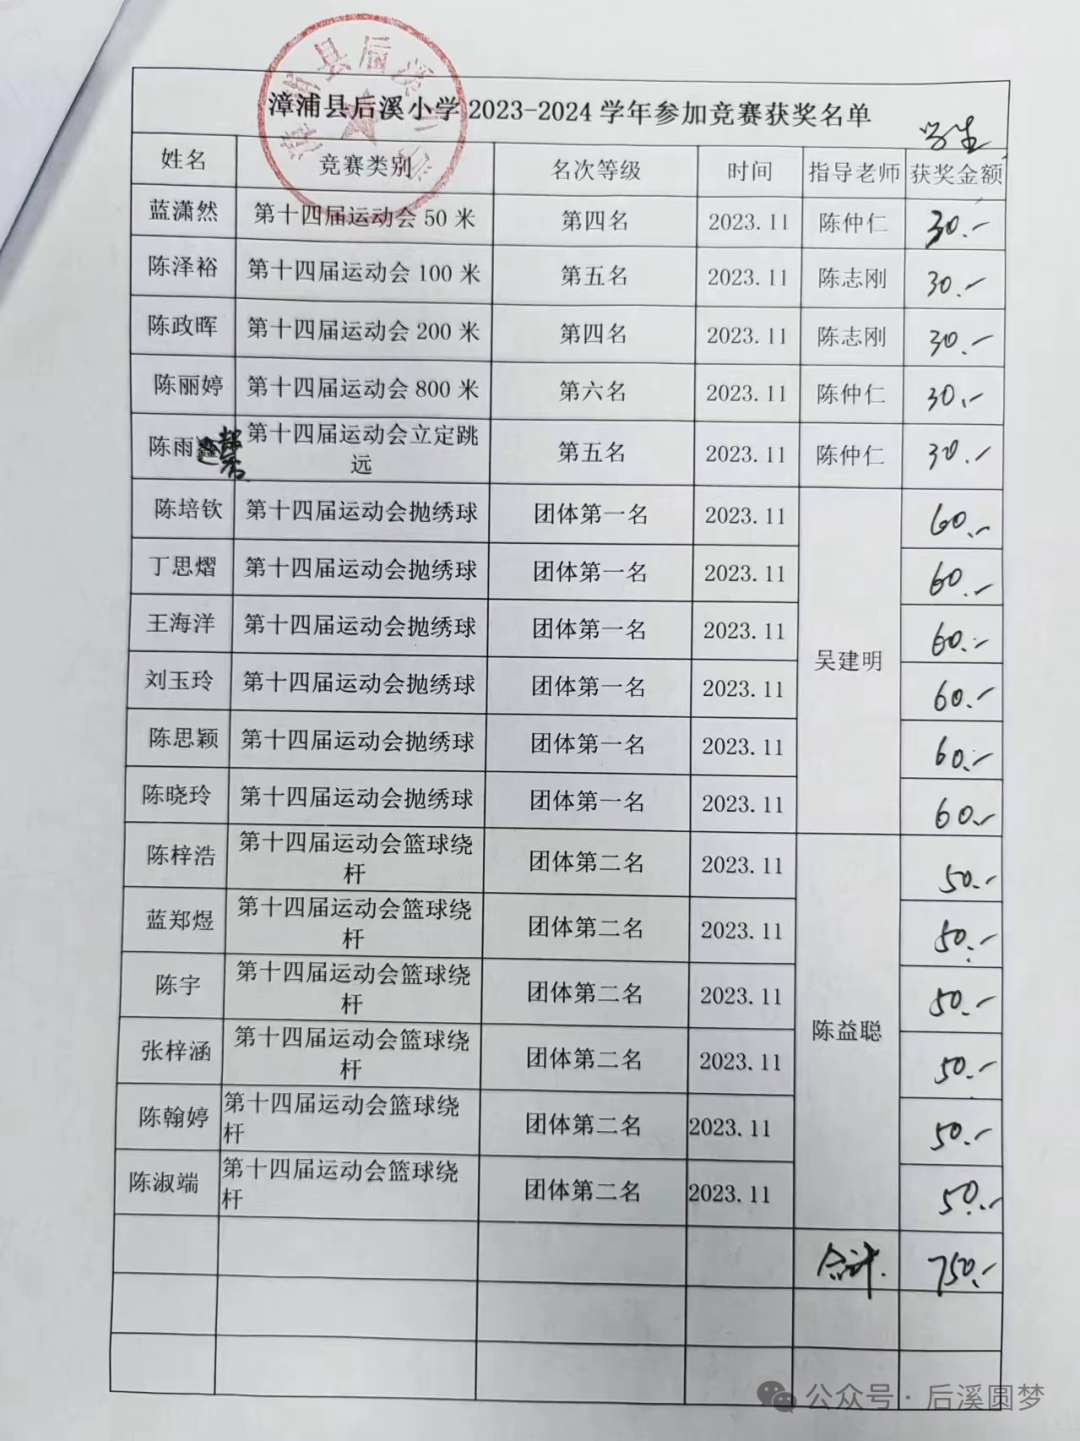 漳浦县后溪小学2023-2024学年参加竞赛获奖名单
学生
姓名 竞赛类别 名次等级 时间 指导老师 获奖金额
蓝潇然 第十四届运动会50米 第四名 2023.11 陈仲仁 30.-
陈泽裕 第十四届运动会100米 第五名 2023.11 陈志刚 30.-
陈政晖 第十四届运动会200米 第四名 2023.11 陈志刚 30.-
陈丽婷 第十四届运动会800米 第六名 2023.11 陈仲仁 30.-
陈雨 第十四届运动会立定跳
远 第五名 2023.11 陈仲仁 30.-
陈培钦 第十四届运动会抛绣球 团体第一名 2023.11 60.-
丁思熠 第十四届运动会抛绣球 团体第一名 2023.11 60.-
王海洋 第十四届运动会抛绣球 团体第一名 2023.11 60.-
吴建明
刘玉玲 第十四届运动会抛绣球 团体第一名 2023.11 60.-
陈思颖 第十四届运动会抛绣球 团体第一名 2023.11 60.-
陈晓玲 第十四届运动会抛绣球 团体第一名 2023.11 60.-
陈梓浩 第十四届运动会篮球绕
杆 团体第二名 2023.11 50.-
蓝郑煜 第十四届运动会篮球绕
杆 团体第二名 2023.11 50.-
陈宇 第十四届运动会篮球绕
杆 团体第二名 2023.11 50.-
陈益聪
张梓涵 第十四届运动会篮球绕
杆 团体第二名 2023.11 50.-
陈翰婷 第十四届运动会篮球绕
杆 团体第二名 2023.11 50.-
陈淑端 第十四届运动会篮球绕
杆 团体第二名 2023.11 50.-
合计. 750.-
公众号·后溪圆梦